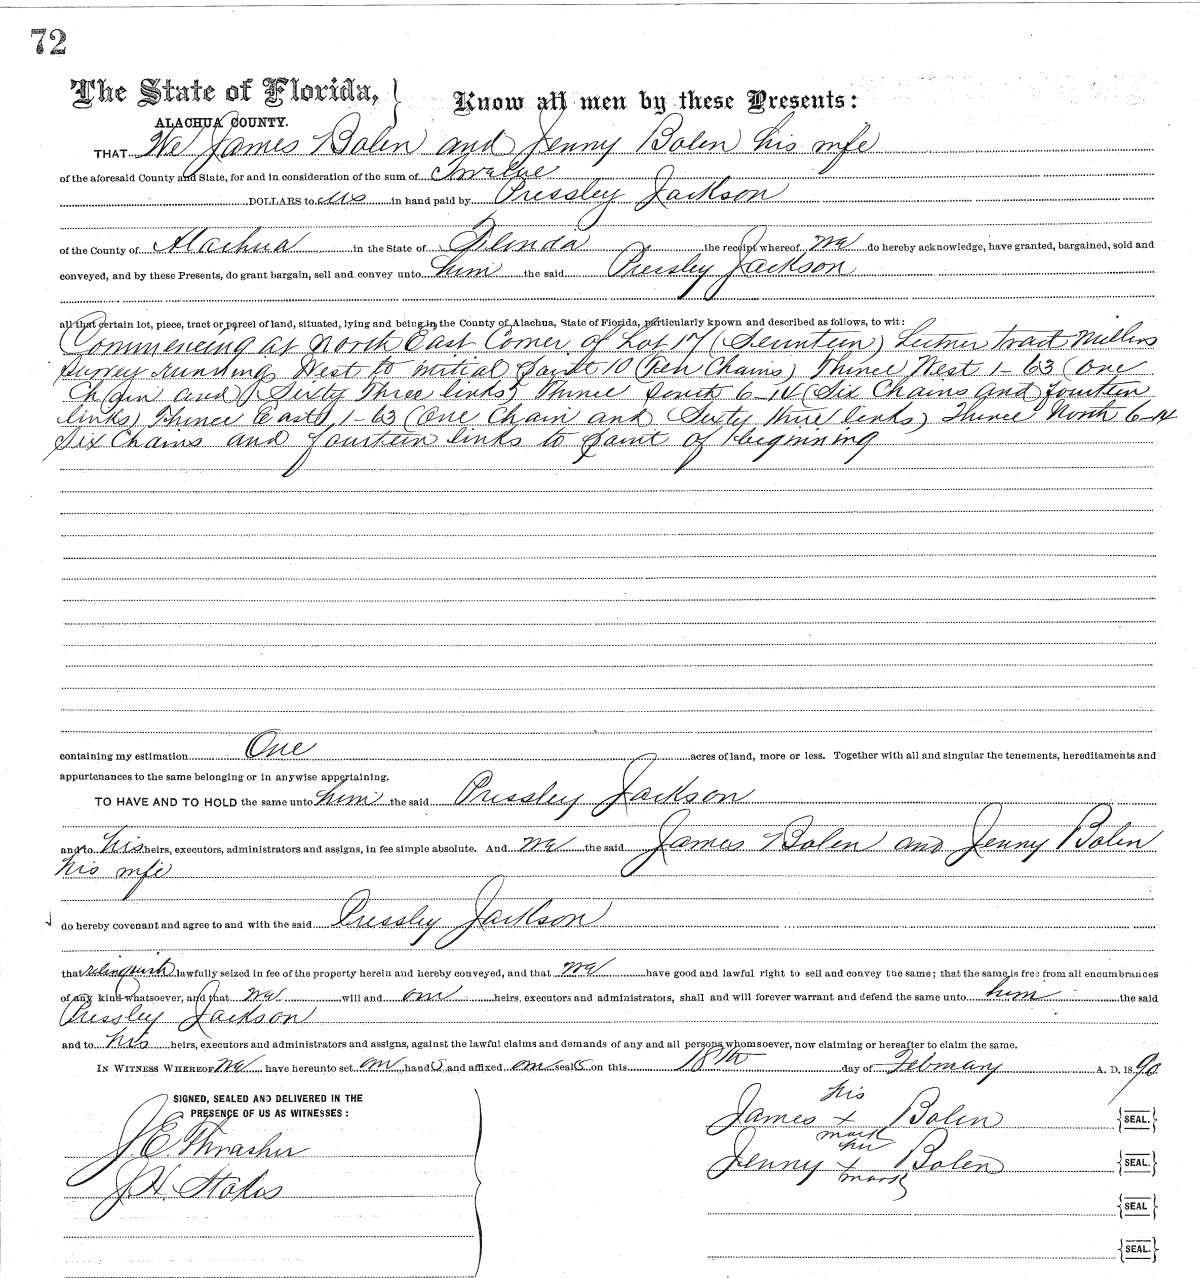 72
The State of Florida, } Know all men by these Presents:
ALACHUA COUNTY.
THAT We James Bolen and Jenny Bolen his wife
of the aforesaid County and State, for and in consideration of the sum of Twelve
DOLLARS to us in hand paid by Pressley Jackson
of the County of Alachua in the State of Florida the receipt whereof we do hereby acknowledge, have granted, bargained, sold and
conveyed, and by these Presents, do grant bargain, sell and convey unto him the said Pressley Jackson
all that certain lot, piece, tract or parcel of land, situated, lying and being in the County of Alachua, State of Florida, particularly known and described as follows, to wit:
Commencing at North East Corner of Lot 17 (Seventeen) tract Millers
Survey running West to initial point 10 (Ten Chains) Thence West 1-63 (one
Chain and) Sixty Three links) Thence South 6-14 (Six Chains and fourteen
links) Thence East 1-63 (One Chain and Sixty three links) Thence North 6-14
Six Chains and fourteen links to point of beginning
containing my estimation One acres of land, more or less. Together with all and singular the tenements, hereditaments and
appurtenances to the same belonging or in anywise appertaining.
TO HAVE AND TO HOLD the same unto him the said Pressley Jackson
and to his heirs, executors, administrators and assigns, in fee simple absolute. And we the said James Bolen and Jenny Bolen
his wife
do hereby covenant and agree to and with the said Pressley Jackson
that relinquish lawfully seized in fee of the property herein and hereby conveyed, and that we have good and lawful right to sell and convey the same; that the same is free from all encumbrances
of any kind whatsoever, and that we will and our heirs, executors and administrators, shall and will forever warrant and defend the same unto him the said
Pressley Jackson
and to his heirs, executors and administrators and assigns, against the lawful claims and demands of any and all persons whomsoever, now claiming or hereafter to claim the same.
IN WITNESS WHEREOF we have hereunto set our hands and affixed our seals on this 18th day of February A. D. 1890
SIGNED, SEALED AND DELIVERED IN THE
PRESENCE OF US AS WITNESSES:
J. E. Thrasher
J. H. Stokes
his
James + Bolen {SEAL.}
mark
her
Jenny + Bolen {SEAL.}
mark
{SEAL}
{SEAL.}